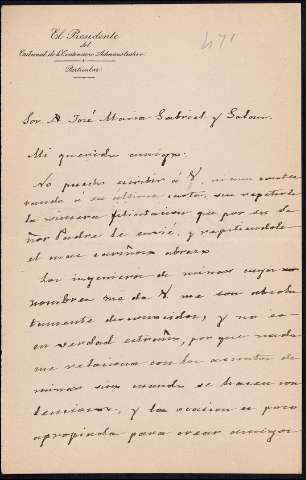 El Presidente
del
Tribunal de lo Contencioso Administrativo
Particular
471
Sor. D. José Maria Gabriel y Galan.
Mi querido amigo:
No puedo escribir á V., ni aun contes
tando á su ultima carta, sin repetirle
la sincera felicitacion que por su Se
ñor Padre le envié, y repitiendole
el mas cariñoso abrazo
Los ingenieros de minas cuyos
nombres me da V. me son absolu
tamente desconocidos, y no es
en verdad extraño, por que nada
me relaciona con los asuntos de
minas sino cuando se hacen con
tenciosos, y la ocasion es poco
apropiada para crear amigos